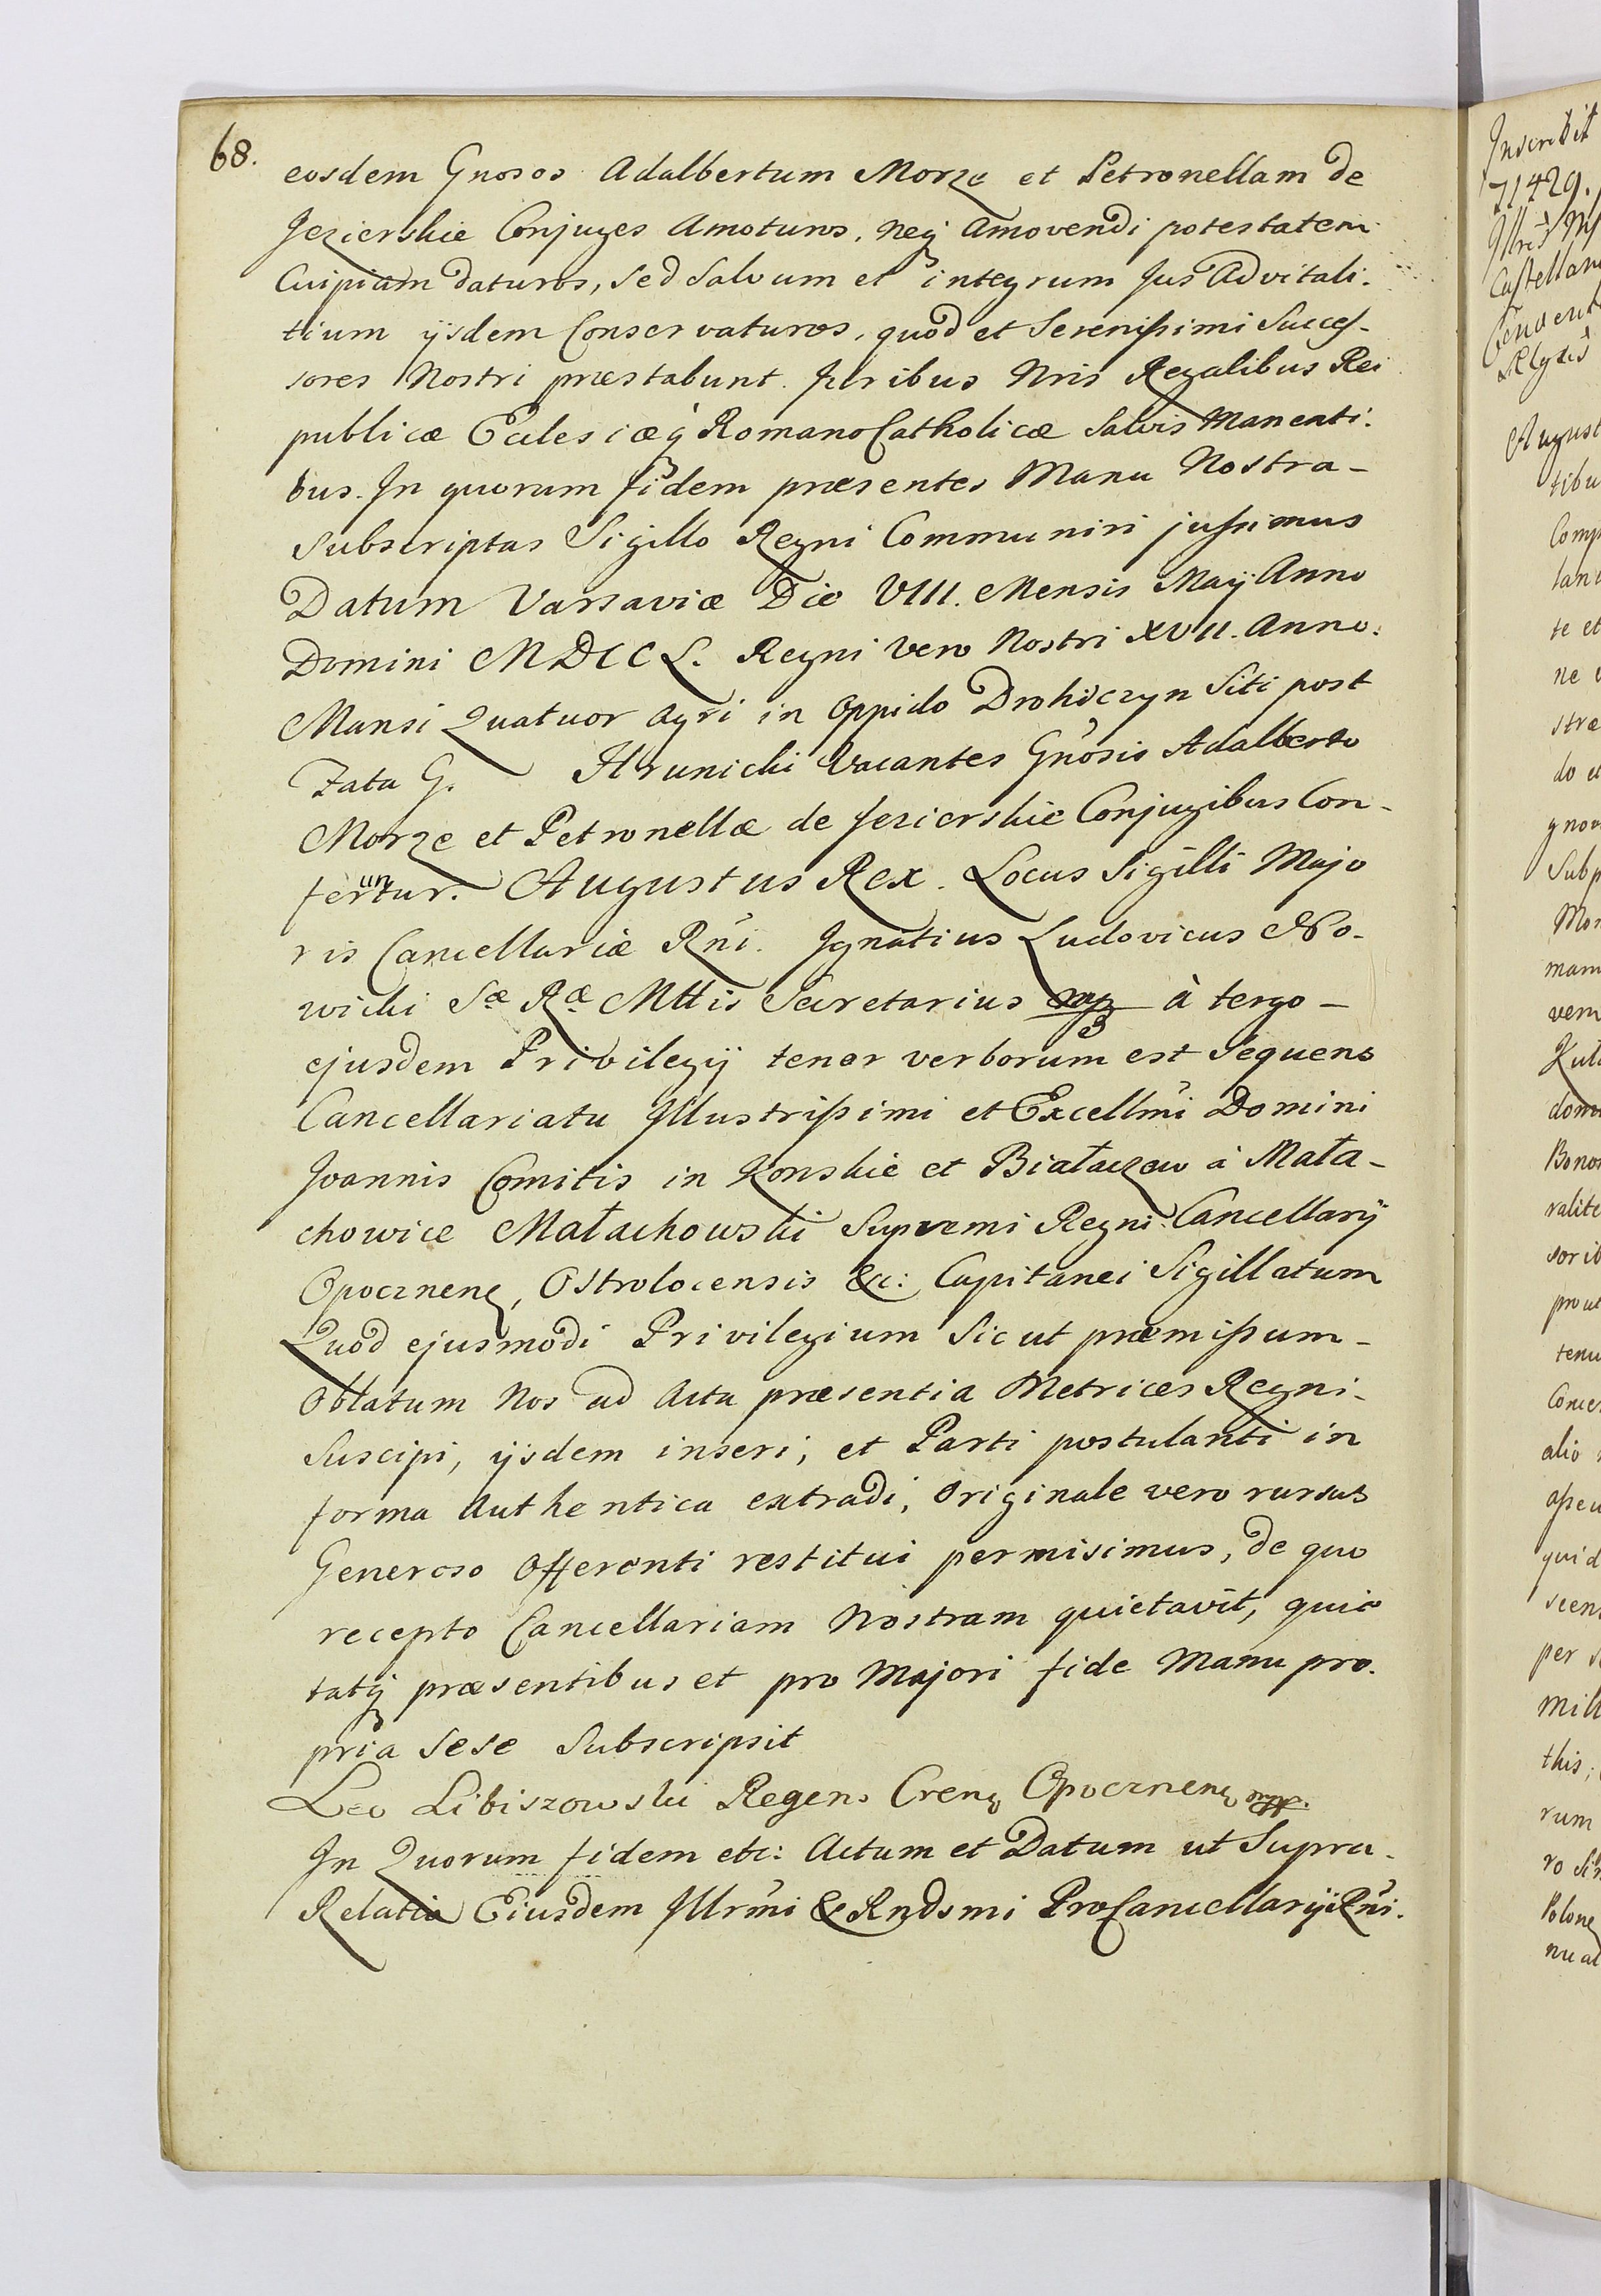 68.
eosdem Gnosos Adalbertum Morze et Petronellam de
Jezierskie Conjuges Amoturos, neq Amovendi potestatem
Cuipiam daturos, sed Salvum et integrum Jus Advitali-
tium ijsdem Conservaturos, quod et Serenissimi Succes-
sores Nostri præstabunt. Juribus Nris Regalibus Rei
publicæ Ecclesiæq Romano Catholicæ Salvis Manenti-
bus. In quorum fidem præsentes Manu Nostra-
Subscriptas Sigillo Regni Communiri jussimus
Datum Varsaviæ Die VIII. Mensis Maij Anno
Domini MDCCL. Regni Vero Nostri XVII. Anno.
Mansi Quatuor agri in Oppido Drohiczyn Siti post
Fata G. Hrunicki Vacantes Gnosis Adalberto
Morze et Petronellæ de Jezierskie Conjugibus Con-
feruntur. Augustus Rex. Locus Sigilli Majo
ris Cancellariæ Rni. Ignatius Ludovicus No-
wicki Sæ Ræ Mttis Secretarius mp à tergo-
ejusdem Privilegij tenor verborum est Sequens
Cancellariatu Illustrissimi et Excellmi Domini
Joannis Comitis in Konskie et Białaczew à Mała-
chowice Małachowski Supremi Regni Cancellarij
Opocznens, Ostrolocensis &c: Capitanei Sigillatum
Quod ejusmodi Privilegium Sicut præmissum-
Oblatum Nos ad Acta præsentia Metrices Regni-
Suscipi, ijsdem inseri, et Parti postulanti in
forma Authentica extradi, Originale vero rursus
Generoso Offerenti restitui permisimus, de quo
recepto Cancellariam Nostram quietavit, quie
tatq præsentibus et pro Majori fide Manu pro-
pria Sese Subscripsit
Leo Libiszowski Regens Crens Opocznens mpp.
In Quorum fidem etc: Actum et Datum ut Supra.
Relatio Eiusdem Illrmi & Rndsmi ProCancellarij Rni.
Inscribit
71429.
Castellan
August
tibu
Comp
te et
ne
stræ
do et
gnov
Subp
mam
vem
Bonor
valite
sorib
prout
tenu
Conce
alio
quid
scen
per
mill
this;
rum
Polone